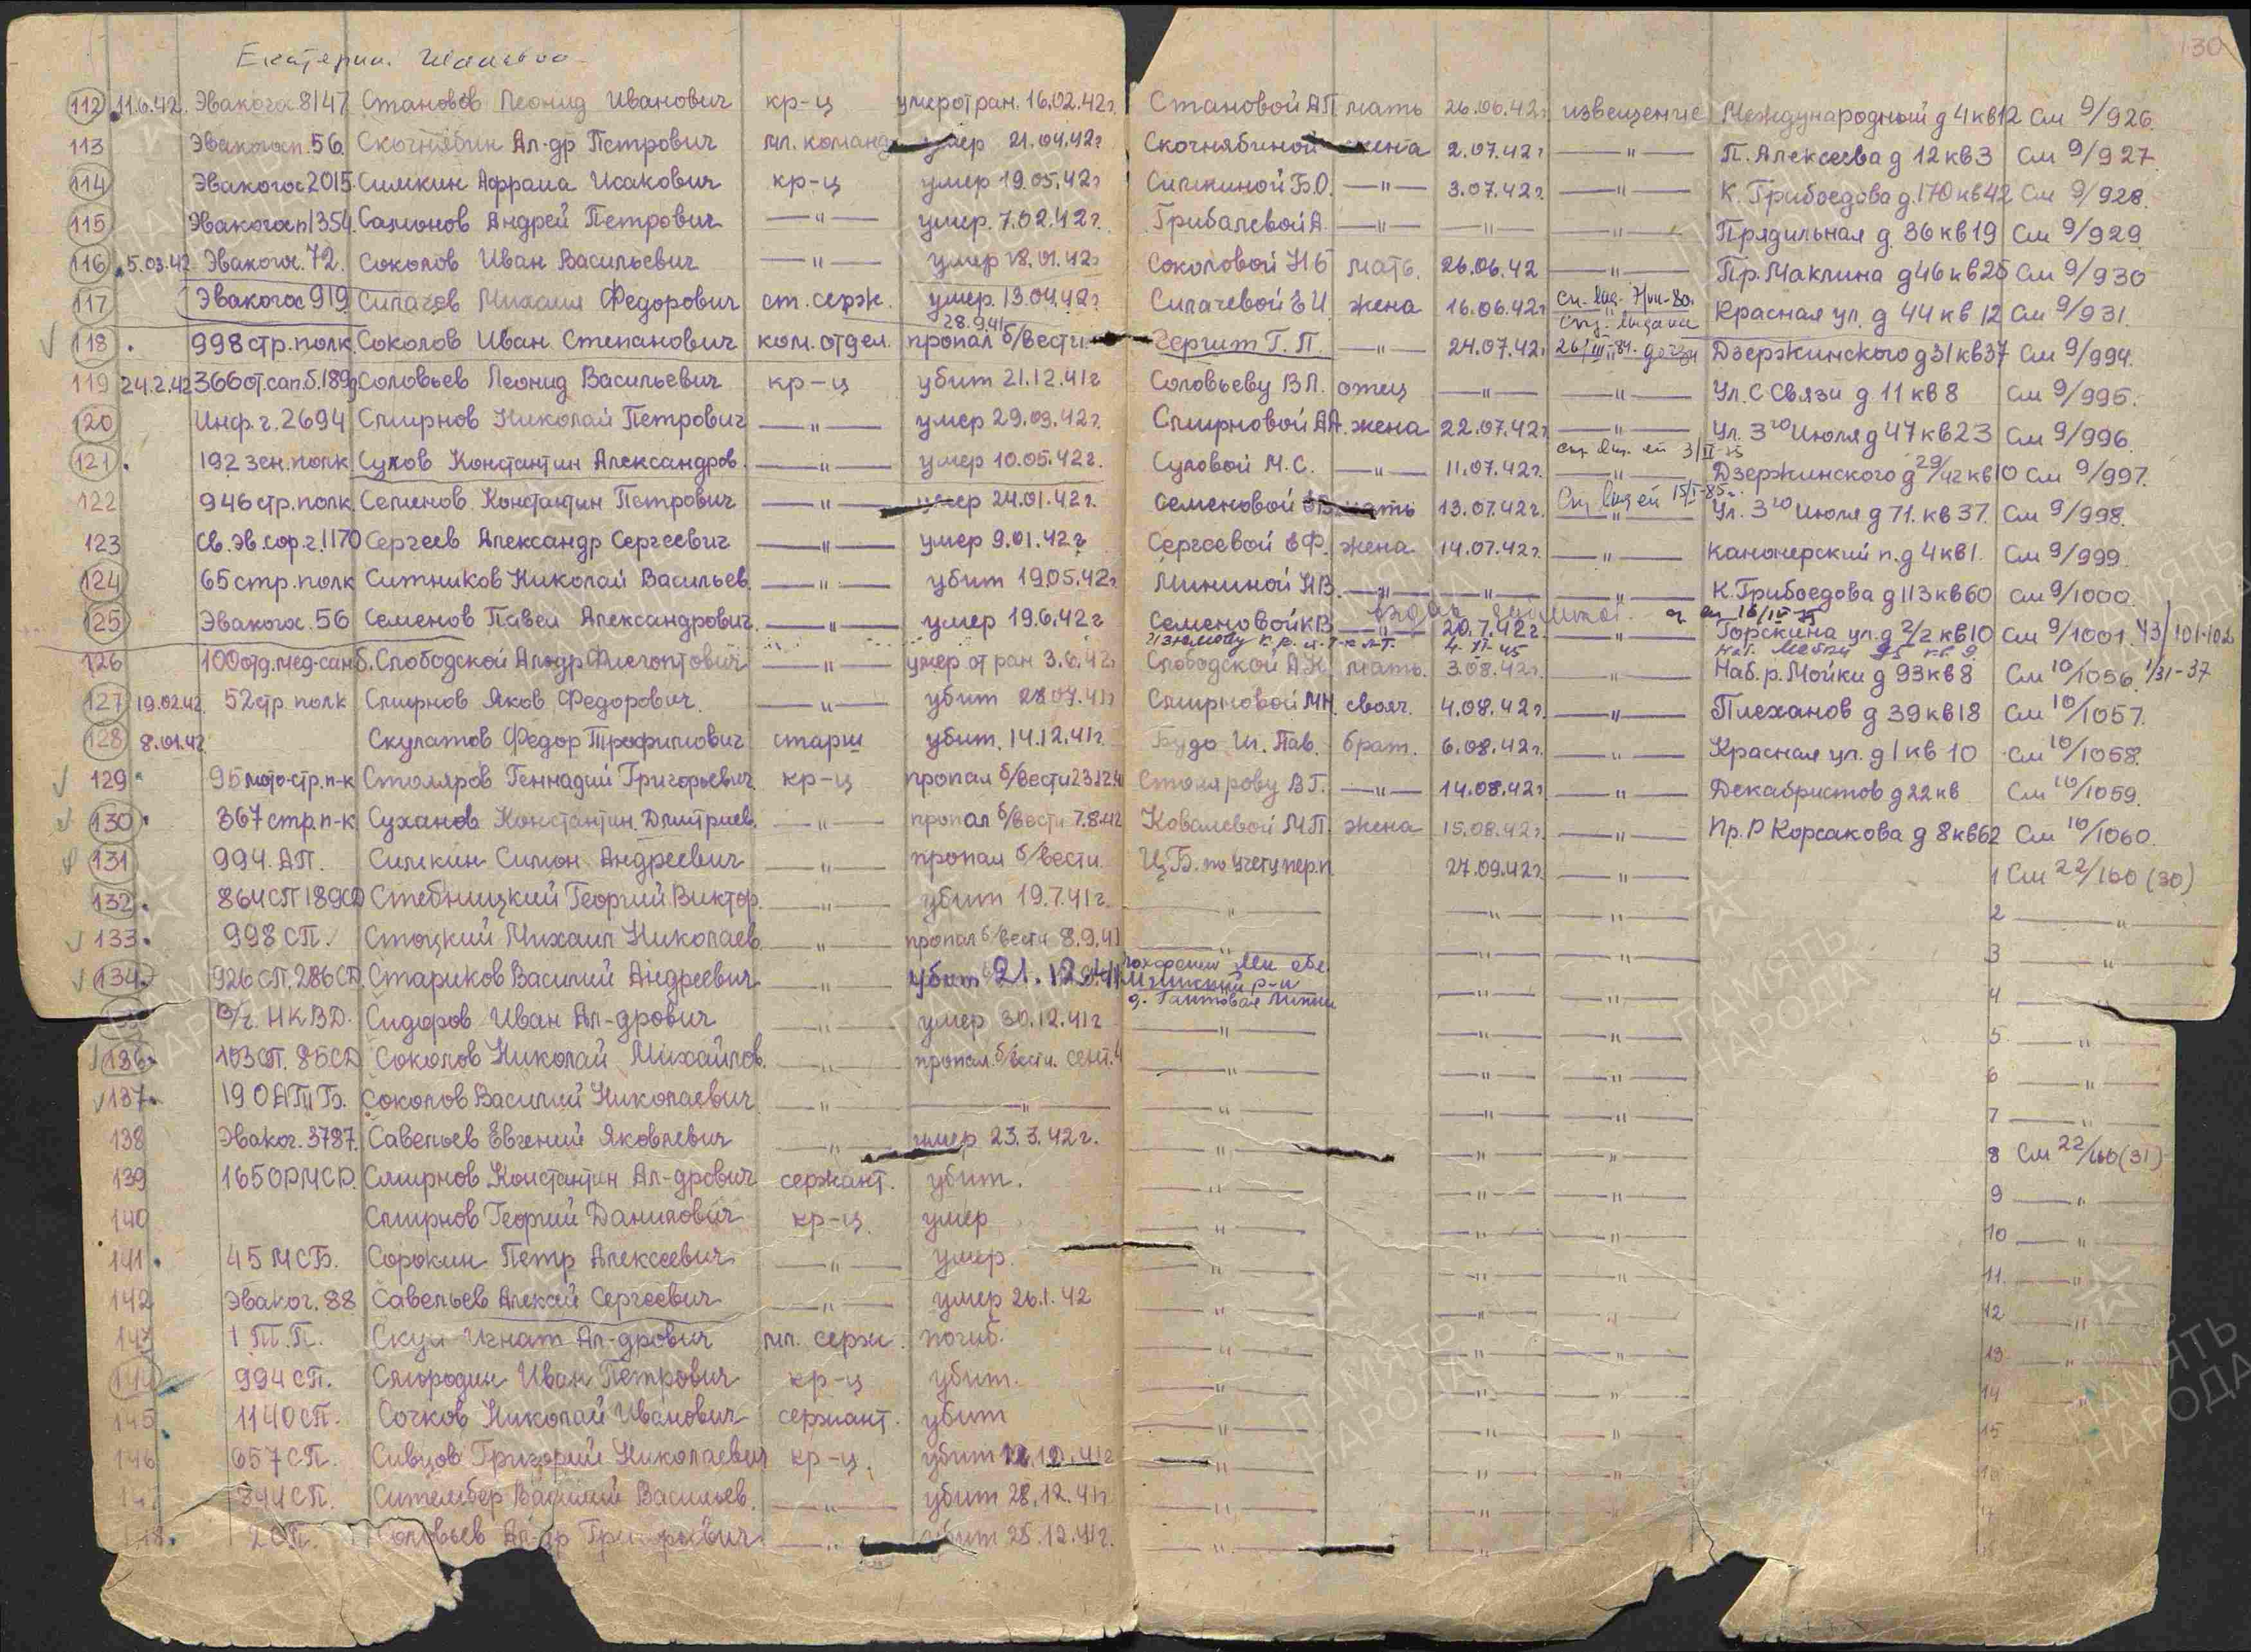 30
Екатерин.
112 11.6.42. Эвакогос 8147 Становов Леонид Иванович кр-ц умер от ран. 16.02.42г. Становой АП мать 26.06.42г извещение Международный д 4 кв 12 См 9/926.
113 Эвакогосп. 56. Скочнябин Ал-др Петрович мл. команд умер 21.04.42г Скочнябиной жена 2.07.42г —"— П. Алексеева д 12 кв 3 См 9/927
114 Эвакогос 2015. Симкин Афраим Исакович кр-ц умер 19.05.42г Симкиной Б.О. —"— 3.07.42г. —"— К. Грибоедова д. 170 кв 42 См 9/928.
115 Эвакогосп 1354. Самонов Андрей Петрович —"— умер. 7.02.42г. Грибалевой А. —"— —"— —"— Прядильная д. 36 кв 19 См 9/929
116 5.03.42 Эвакогос. 72. Соколов Иван Васильевич —"— умер 18.01.42г Соколовой Н Б мать. 26.06.42 —"— Пр. Маклина д 46 кв 25 См 9/930
117 Эвакогос 919 Силачев Михаил Федорович ст. серж. умер. 13.04.42г. Силачевой Е И. жена 16.06.42г —"— Красная ул. д 44 кв 12 См 9/931.
118 998 стр. полк. Соколов Иван Степанович ком. отдел. 28.9.41 пропал б/вести Гершт Г. П. —"— 24.07.42г Дзержинского д 31 кв 37 См 9/994.
119 24.2.42 366 от. сап. б. 189д Соловьев Леонид Васильевич кр-ц убит 21.12.41г Соловьеву В Л. отец —"— —"— Ул. С Связи д. 11 кв 8 См 9/995.
120 Инф. г. 2694 Смирнов Николай Петрович —"— умер 29.03.42г. Смирновой АА. жена 22.07.42г —"— Ул. 3го Июля д 47 кв 23 См 9/996.
121. 192 зен. полк Сулов Константин Александров. —"— умер 10.05.42г. Суловой М. С. —"— 11.07.42г. —"— Дзержинского д 29/42 кв 10 См 9/997.
122 946 стр. полк. Семенов Константин Петрович —"— умер 24.01.42г. Семеновой мать 13.07.42г. —"— Ул. 3го Июля д 71. кв 37. См 9/998.
123 Св. эв. сор. г. 1170 Сергеев Александр Сергеевич —"— умер 9.01.42г Сергеевой ЕФ. жена 14.07.42г. —"— Канонерский п. д 4 кв 1. См 9/999.
124 65 стр. полк Ситников Николай Васильев. —"— убит 19.05.42г Мининой НВ. —"— —"— —"— К. Грибоедова д 113 кв 60 См 9/1000.
125 Эвакогос. 56 Семенов Павел Александрович —"— умер 19.6.42г Семеновой КВ —"— 20.7.42г. —"— Горскина ул. д 2/2 кв 10 См 9/1001. 43/101-102
126 100 отд. мед-санб. Слободской Ал-др —"— умер от ран 3.6.42г Слободской А.Н. мать. 3.08.42г. —"— Наб. р. Мойки д 93 кв 8 См 10/1056. 1/31-37
127 19.02.42. 52 стр. полк Смирнов Яков Федорович. —"— убит 28.07.41г Смирновой МН. свояч. 4.08.42г. —"— Плеханов д 39 кв 18 См 10/1057.
128 8.01.42 Скулатов Федор Трофимович старш убит. 14.12.41г. Будо Пав. брат. 6.08.42г. —"— Красная ул. д 1 кв 10 См 10/1058.
129 95 мото-стр. п-к Столяров Геннадий Григорьевич. кр-ц пропал б/вести 23.12.41 Столярову В Г. —"— 14.08.42г —"— Декабристов д 22 кв См 10/1059.
130. 367 стр. п-к Суханов Константин Дмитриев. —"— пропал б/вести 7.8.42 Ковалевой М П. жена 15.08.42г. —"— Пр. Р Корсакова д 8 кв 62 См 10/1060.
131 994. АП. Симкин Симон Андреевич —"— пропал б/вести. Ц.Б. по учету пер. п. 27.09.42г. —"— 1 См 22/160 (30)
132. 864 СП 189 СД Стебницкий Георгий Виктор. —"— убит 19.7.41г. —"— —"— —"— 2 —"—
133. 998 СП. Стоцкий Михаил Николаев. —"— пропал б/вести 8.9.41 —"— —"— —"— 3 —"—
134. 926 СП. 286 СД. Стариков Василий Андреевич —"— убит 21.12.41 похоронен Лен обл. Мгинский р-н д. Гайтовая —"— —"— 4 —"—
В/ч. НКВД. Сидоров Иван Ал-дрович —"— умер 30.12.41г —"— —"— —"— 5. —"—
136. 103 СП. 85 СД Соколов Николай Михайлов. —"— пропал б/вести. сент. 41 —"— —"— —"— 6 —"—
137. 19 О А П Б. Соколов Василий Николаевич —"— —"— —"— —"— —"— 7 —"—
138 Эваког. 3787. Савельев Евгений Яковлевич —"— умер 23.3.42г. —"— —"— —"— 8 См 22/160 (31)
139 165 ОРМСР. Смирнов Константин Ал-дрович сержант. убит. —"— —"— —"— 9 —"—
140 Смирнов Георгий Данилович кр-ц. умер —"— —"— —"— 10 —"—
141. 45 МСБ. Сорокин Петр Алексеевич —"— умер. —"— —"— —"— 11. —"—
142 Эваког. 88 Савельев Алексей Сергеевич —"— умер 26.1.42 —"— —"— —"— 12 —"—
143 1 Т.П. Скуи Игнат Ал-дрович мл. серж. погиб. —"— —"— —"— 13 —"—
144 994 СП. Смородин Иван Петрович кр-ц убит. —"— —"— —"— 14 —"—
145 1140 СП. Сочков Николай Иванович сержант. убит —"— —"— —"— 15 —"—
146 657 СП. Сивцов Григорий Николаевич кр-ц. убит 12.12.41г —"— —"— —"— —"—
344 СП. Василий Васильев. —"— убит 28.12.41г —"— —"— —"— 17 —"—
2 СП. Соловьев Ал-др Григорьевич. —"— убит 25.12.41г. —"— —"—